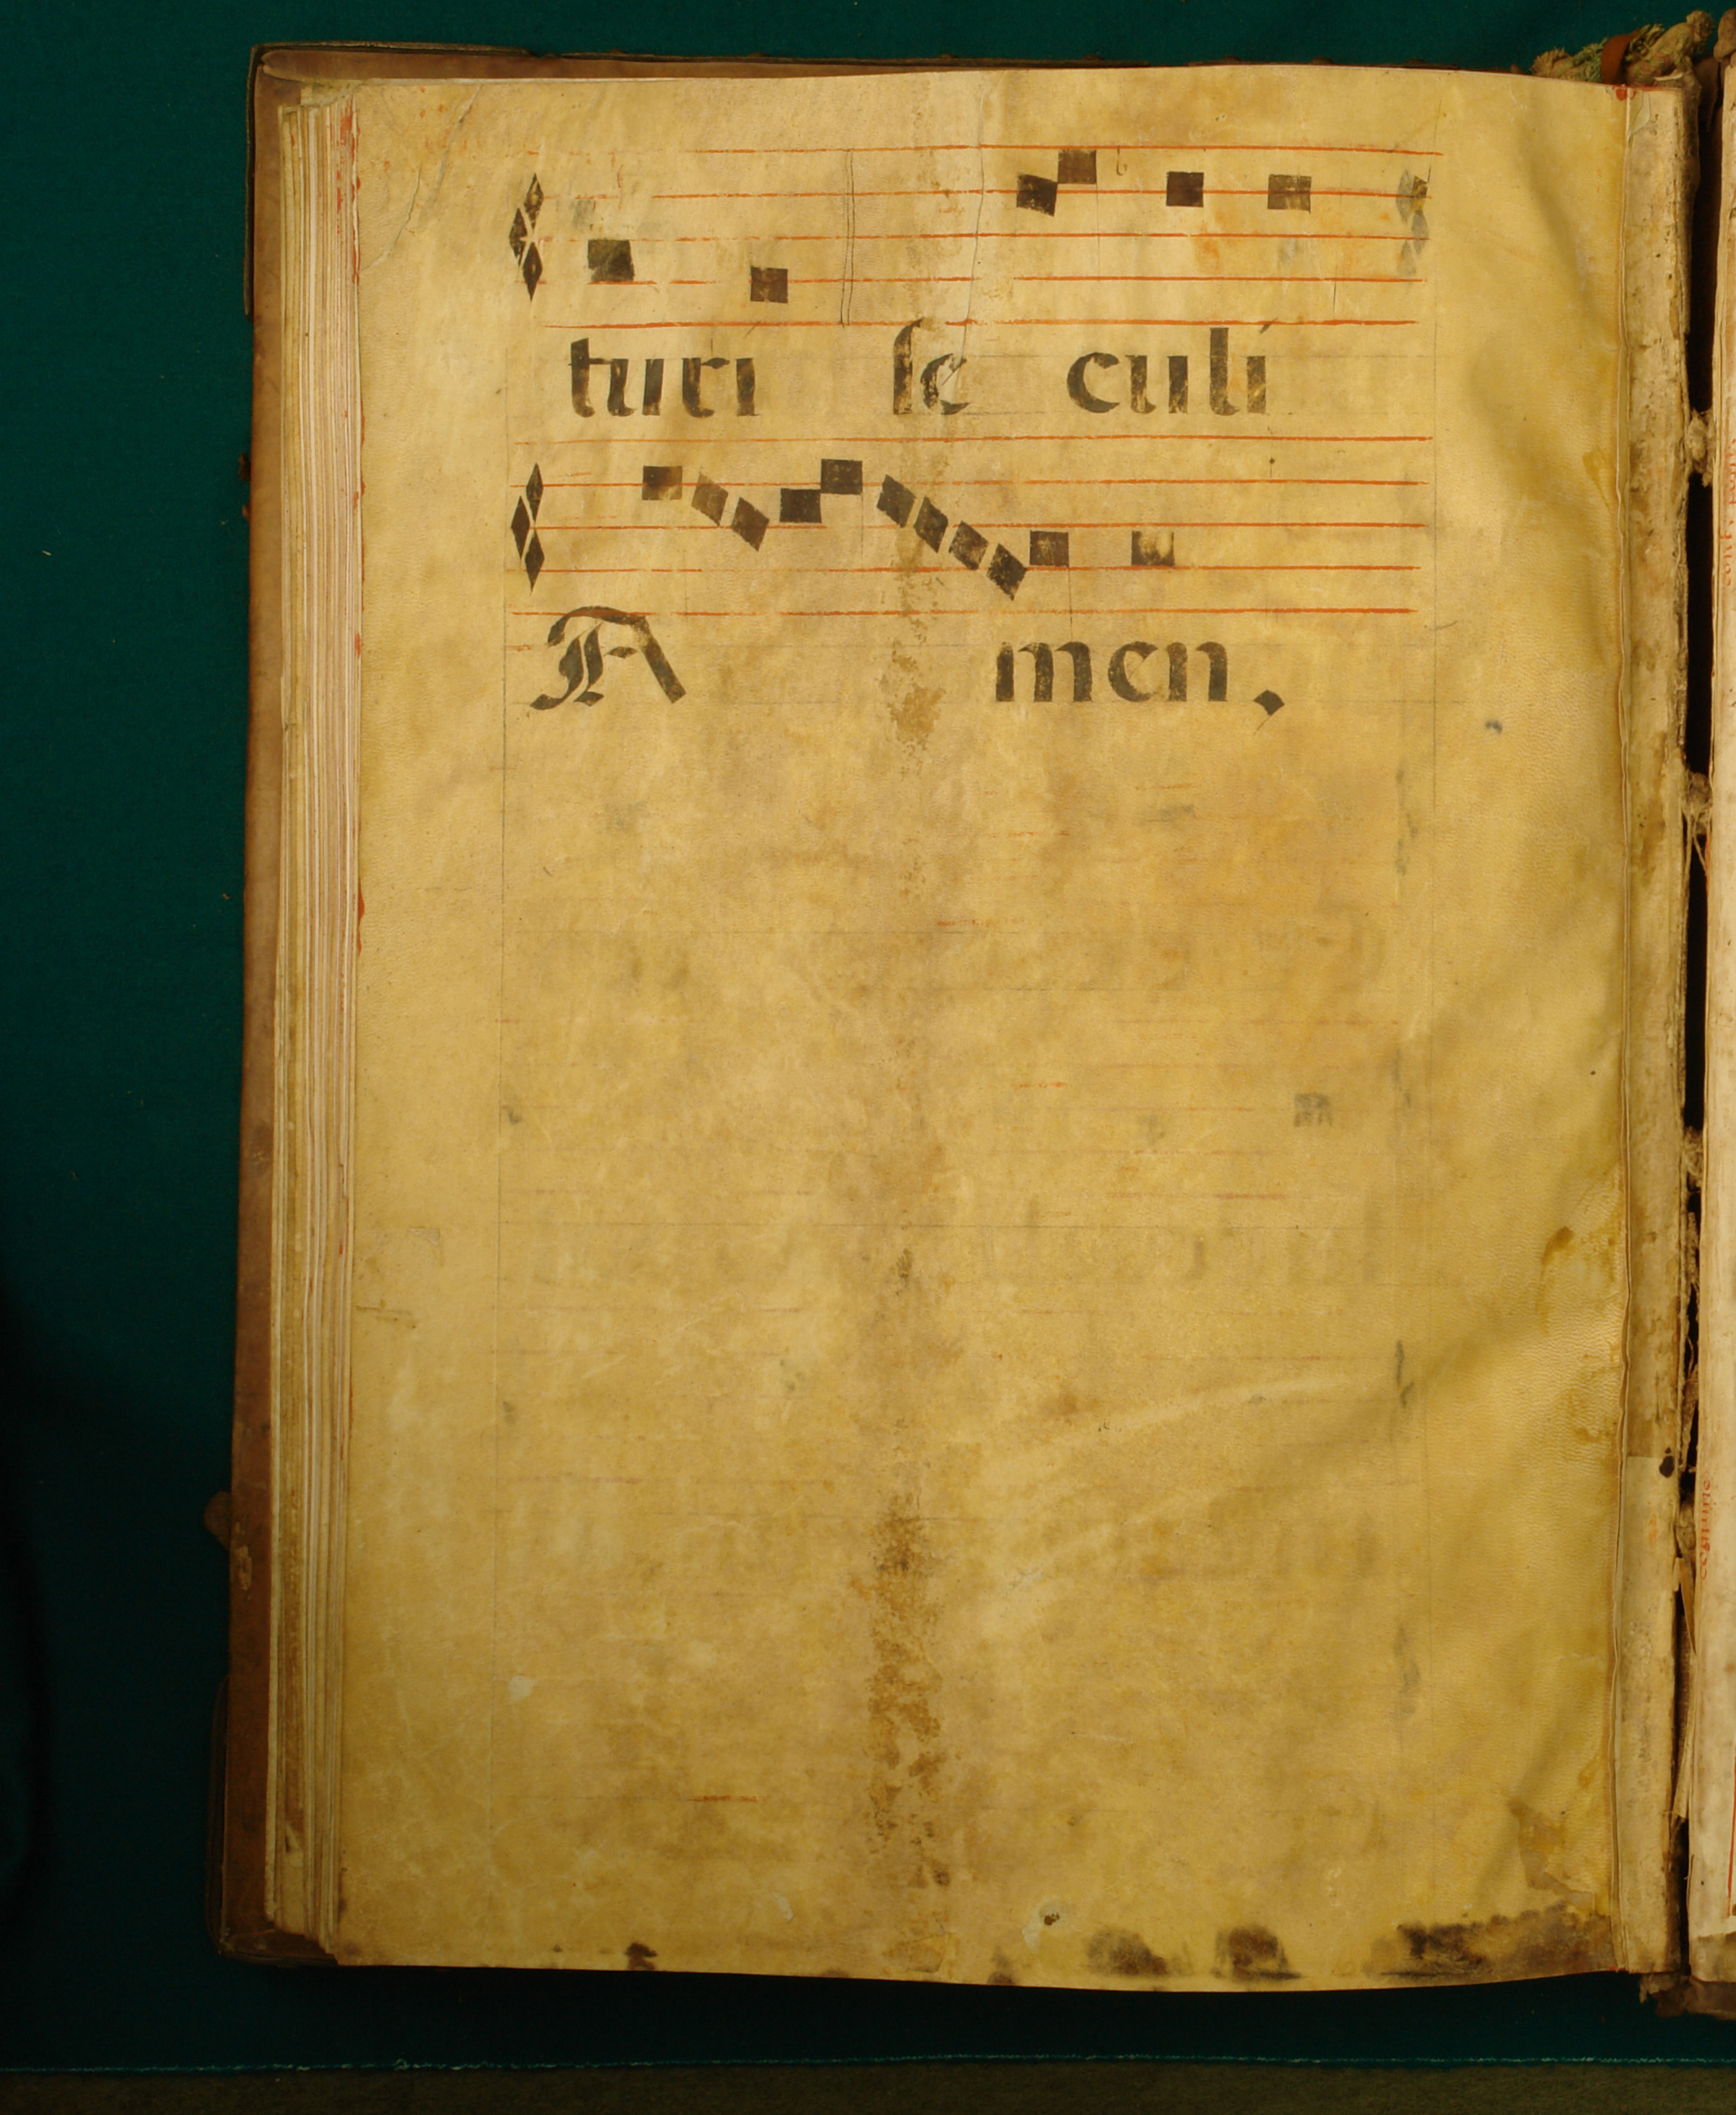 turi se culi
Amen,